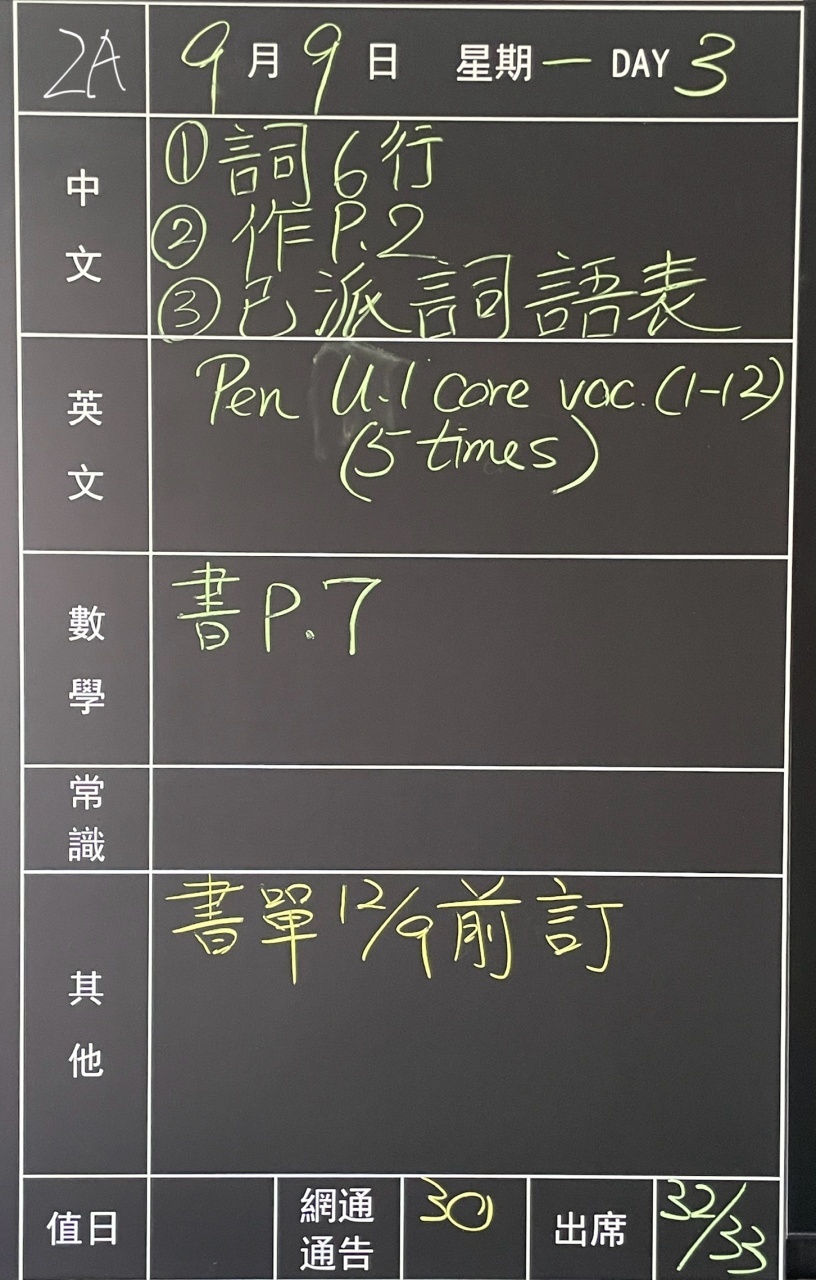 2A 9月9日 星期一 DAY 3
中文
①詞6行
②作P.2
③已派詞語表
英文
Pen U.1 core voc.(1-12)
(5 times)
數學
書P.7
常識
其他
書單12/9前訂
值日 網通通告 30 出席 32/33